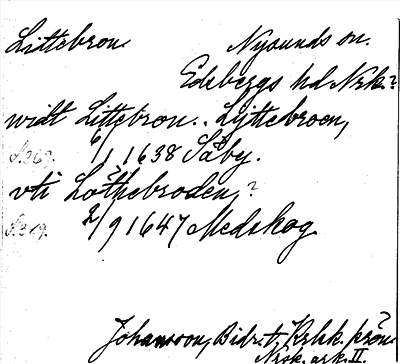 Littebron Nysunds sn.
Edsbergs hd Nrk.?
widt Littebron. Lyttebroen,
S.369. 6/1 1638 Säby.
vti Löthebroden,?
S.369. 2/9 1647 Medskog
Johansson, Bidr. t.
Nrsk. ark. II.